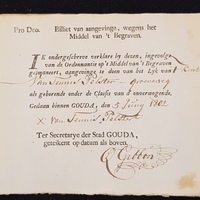 Pro Deo. Billiet van aangevinge, wegens het
Middel van 't Begraven.
IK ondergeschreve verklare by dezen, ingevolge
van de Ordonnantie op 't Middel van 't Begraven
geëmaneert, aangevinge te doen van het Lyk van
Jan Teunis Pelster
als gehorende onder de Classis van d' onvermogende.
Gedaan binnen GOUDA, den 5 Juny 1802
X Van Teunis Pelster
Ter Secretarye der Stad GOUDA,
geteikent op datum als boven.